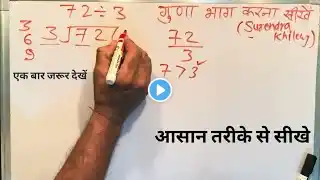 72÷3 गुणा भाग करना सीखें
3 3)72( 72 (Surendra
6 3 Khilery)
9 7>3✓
एक बार जरूर देखें
आसान तरीके से सीखे